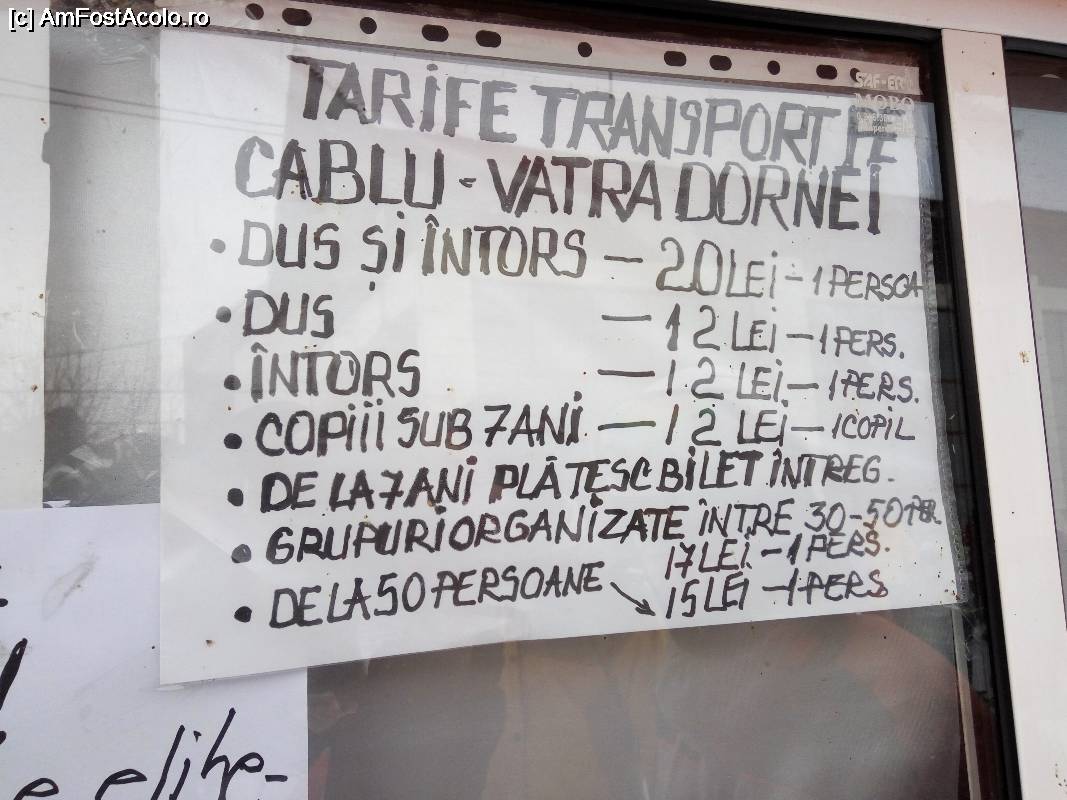 [c] AmFostAcolo.ro
TARIFE TRANSPORT PE
CABLU - VATRA DORNEI
• DUS ȘI ÎNTORS — 20 LEI - 1 PERSOA
• DUS — 12 LEI - 1 PERS.
• ÎNTORS — 12 LEI - 1 PERS.
• COPIII SUB 7 ANI — 12 LEI - 1 COPIL
• DE LA 7 ANI PLĂTESC BILET ÎNTREG.
• GRUPURI ORGANIZATE ÎNTRE 30-50 PER.
17 LEI - 1 PERS.
• DE LA 50 PERSOANE → 15 LEI - 1 PERS